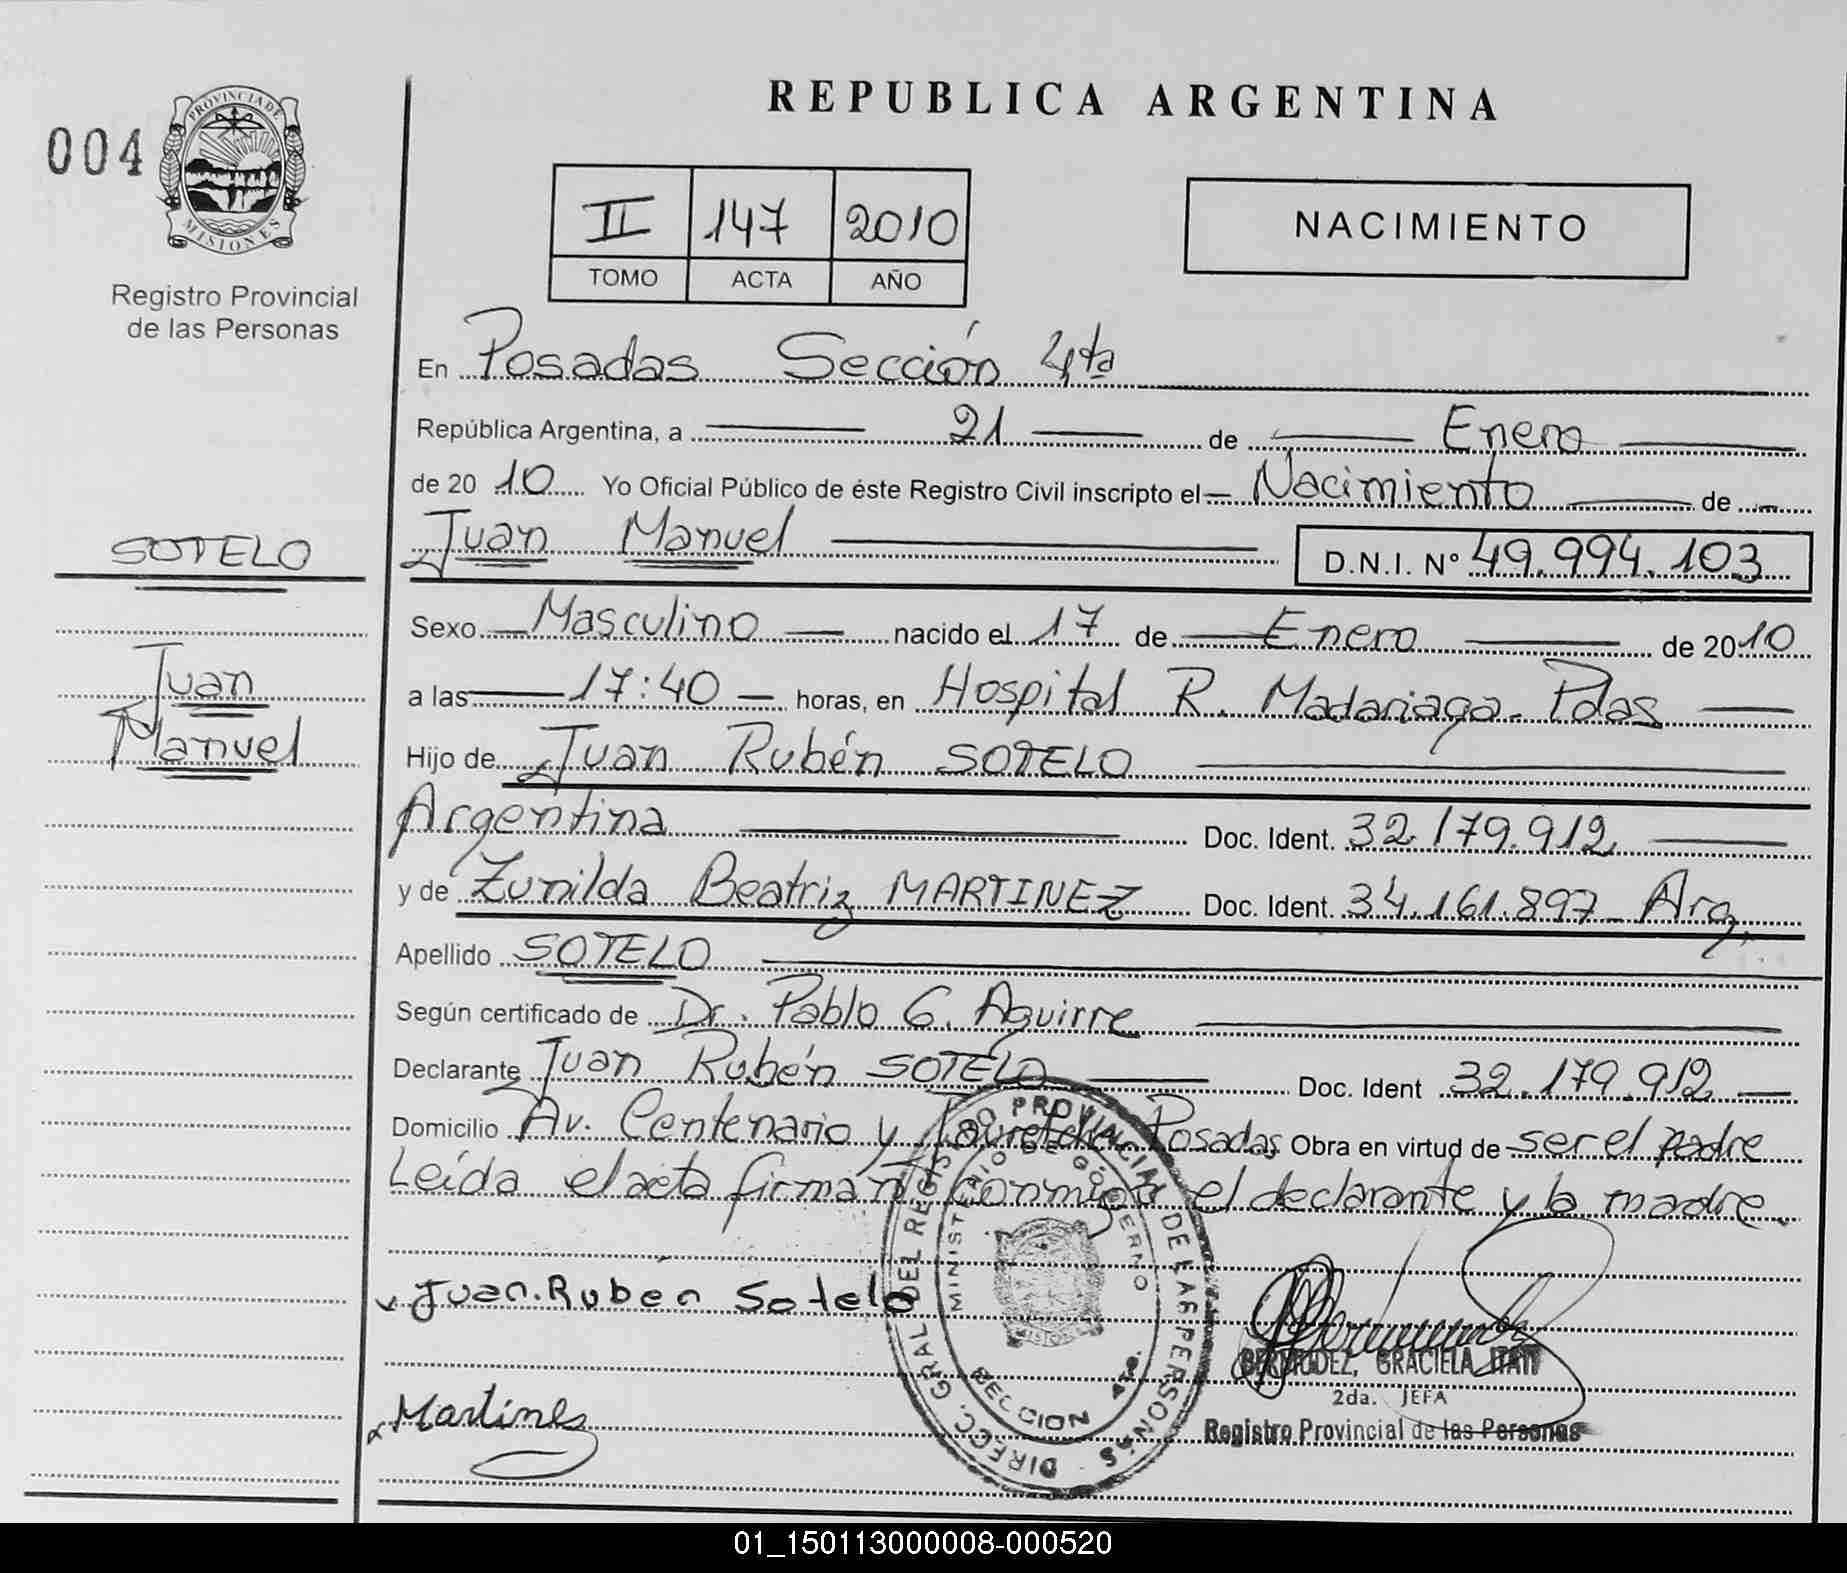 REPUBLICA ARGENTINA
004
PROVINCIA DE
MISIONES
Registro Provincial
de las Personas
II 147 2010
TOMO ACTA AÑO
NACIMIENTO
En Posadas Sección 4ta
República Argentina, a 21 de Enero
de 20 10 Yo Oficial Público de éste Registro Civil inscripto el Nacimiento de
Juan Manuel D.N.I. N° 49.994.103
SOTELO
Juan
Manuel
Sexo Masculino nacido el 17 de Enero de 2010
a las 17:40 horas, en Hospital R. Madariaga - Pdas
Hijo de Juan Rubén SOTELO
Argentina Doc. Ident. 32.179.912
y de Zunilda Beatriz MARTINEZ Doc. Ident. 34.161.897 Arg.
Apellido SOTELO
Según certificado de Dr. Pablo G. Aguirre
Declarante Juan Rubén SOTELO Doc. Ident 32.179.912
Domicilio Av. Centenario y Posadas Obra en virtud de ser el padre
Leída el acta firman conmigo el declarante y la madre.
DIRECC. GRAL DEL REGISTRO PROVINCIAL DE LAS PERSONAS
MINISTERIO DE GOBIERNO
SECCION 4TO.
Juan Rubén Sotelo
BERMUDEZ, GRACIELA ITATI
2da. JEFA
Registro Provincial de las Personas
Martines
01_150113000008-000520